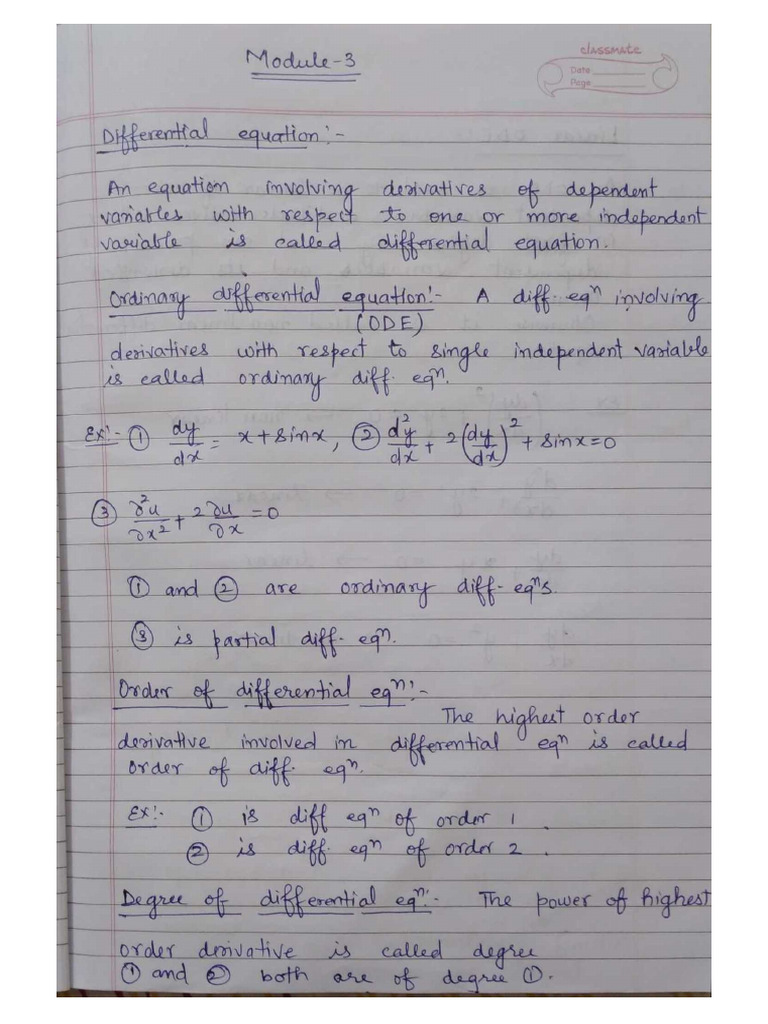 Module-3
classmate
Date
Page
Differential equation:-
An equation involving derivatives of dependent
variables with respect to one or more independent
variable is called differential equation.
Ordinary differential equation:- A diff. eqⁿ involving
(ODE)
derivatives with respect to single independent variable
is called ordinary diff. eqⁿ.
Ex:- ① dy/dx = x + sinx, ② d²y/dx + 2(dy/dx)² + sinx = 0
③ ∂²u/∂x² + 2∂u/∂x = 0
① and ② are ordinary diff. eqⁿs.
③ is partial diff. eqⁿ.
Order of differential eqⁿ:-
The highest order
derivative involved in differential eqⁿ is called
order of diff. eqⁿ.
Ex:- ① is diff eqⁿ of order 1.
② is diff. eqⁿ of order 2.
Degree of differential eqⁿ:- The power of highest
order derivative is called degree
① and ② both are of degree ①.